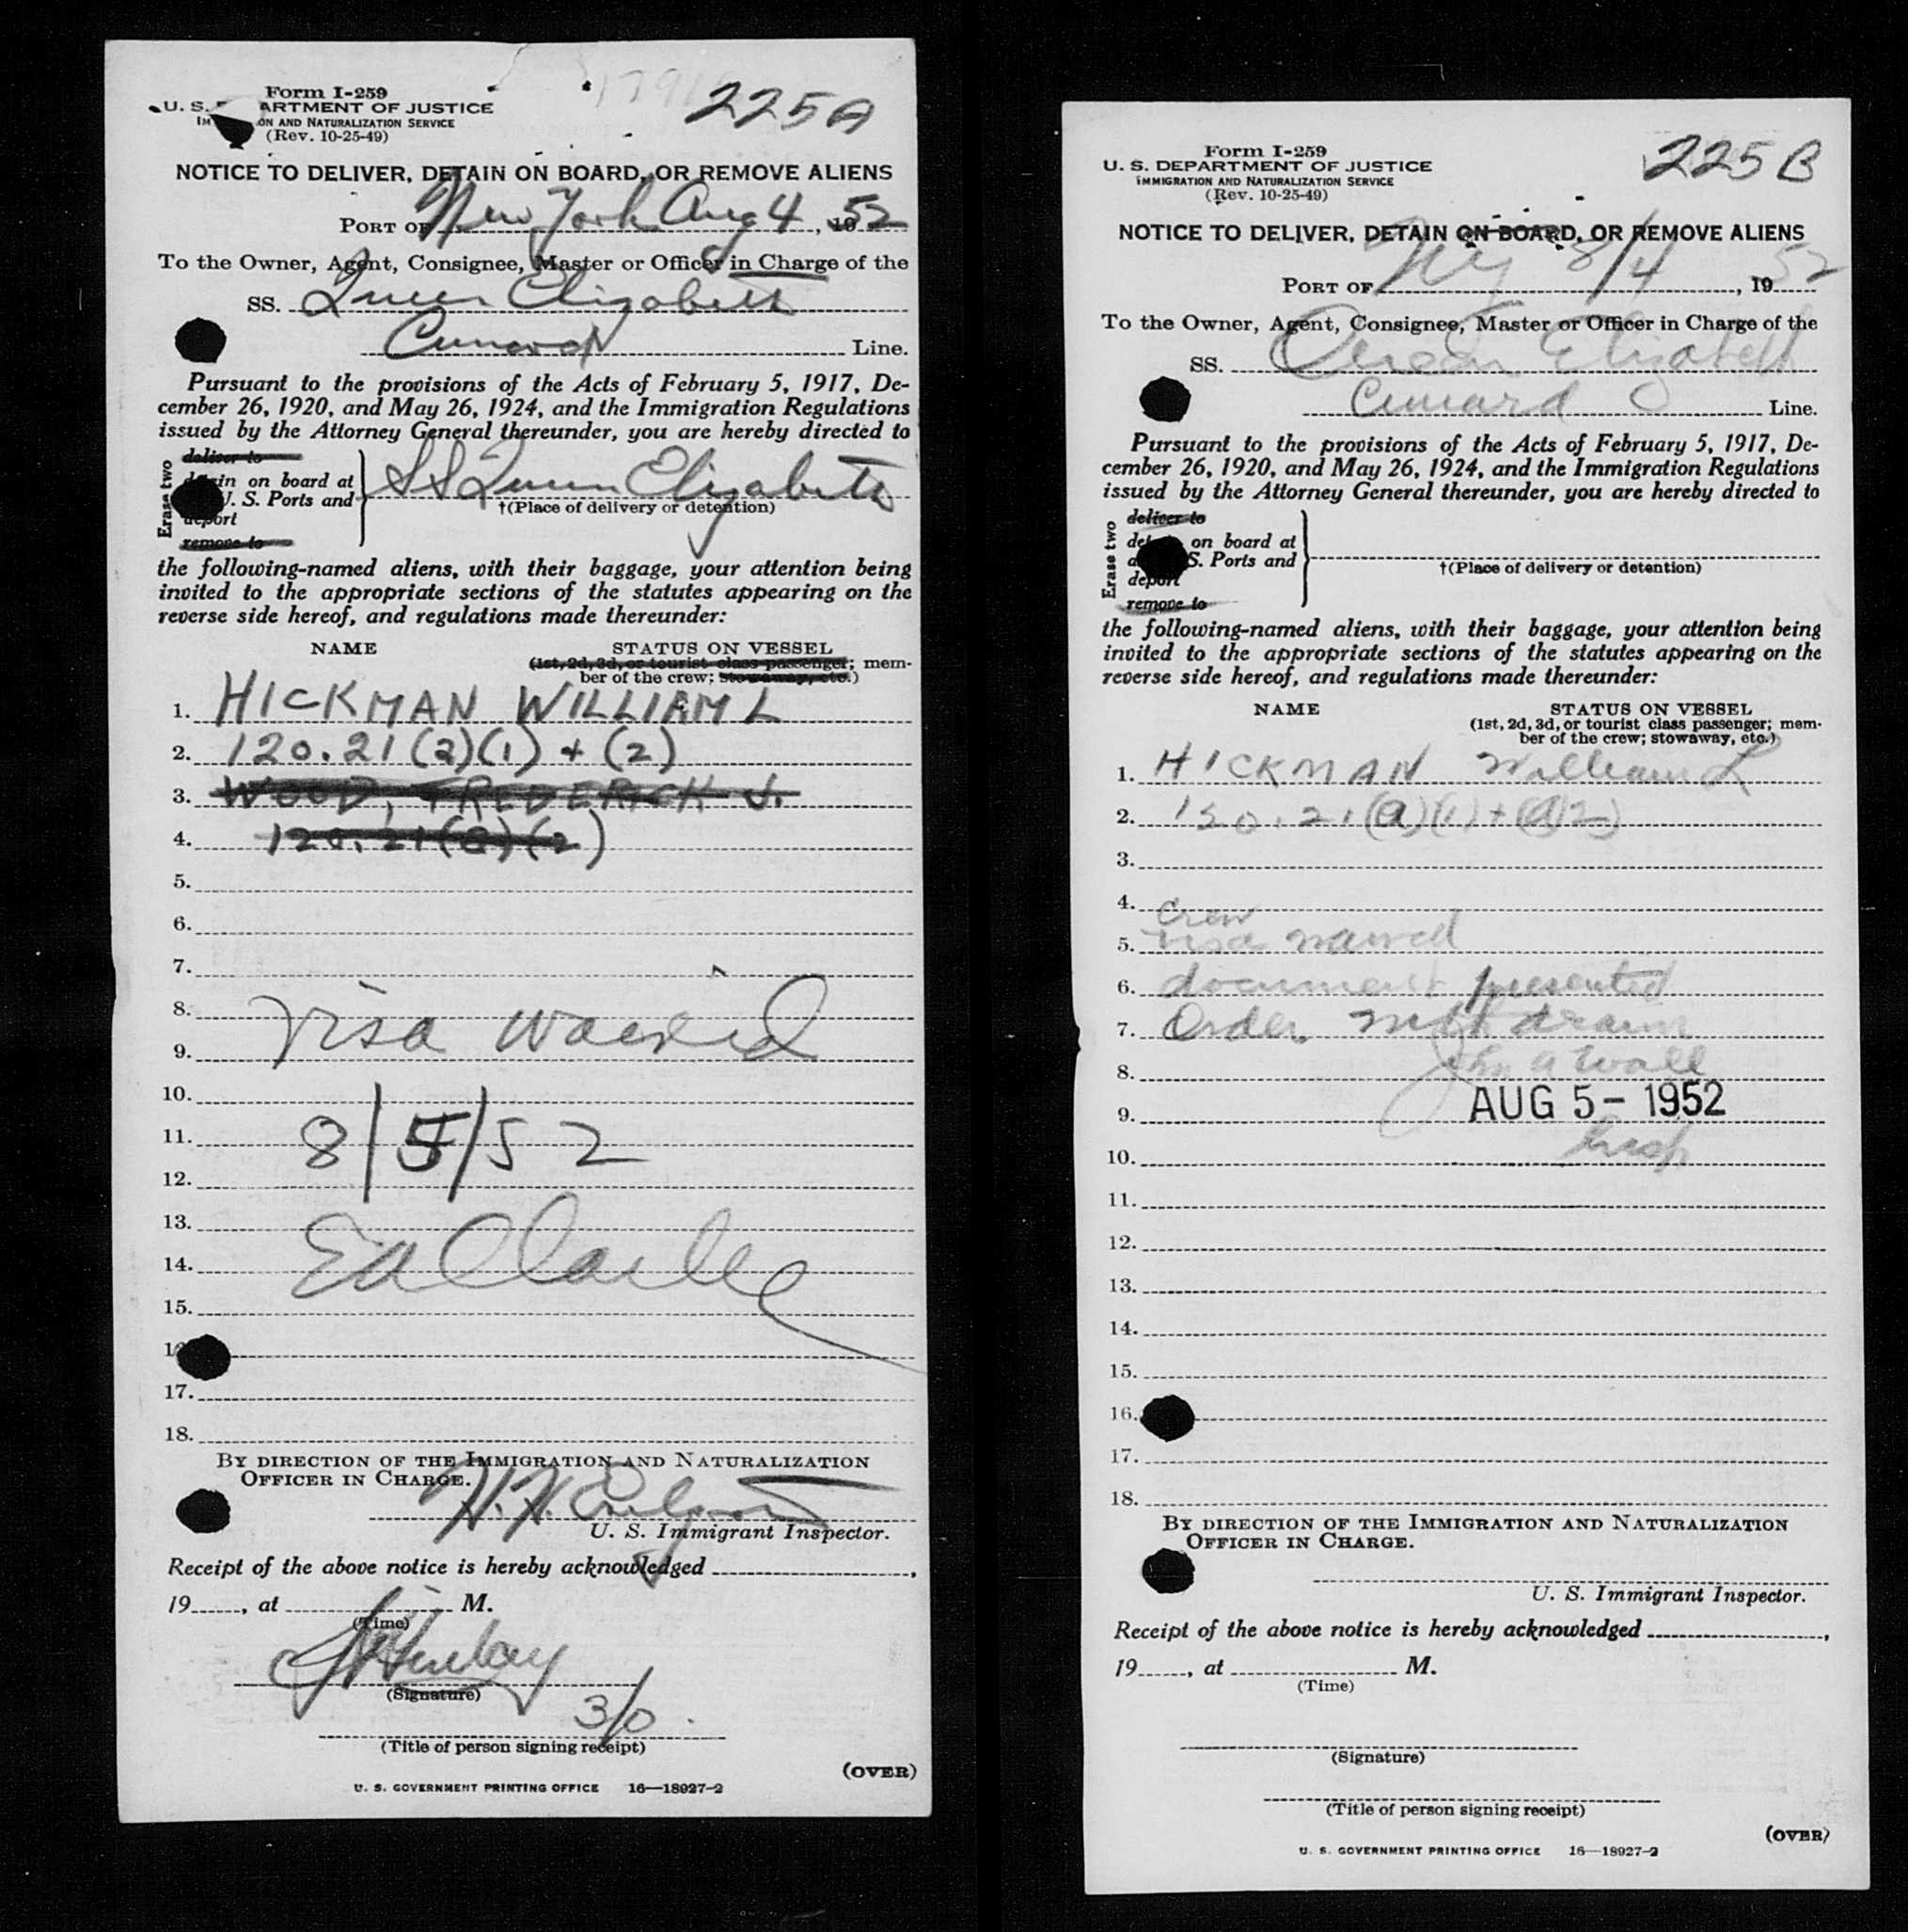 Form I-259
U. S. ARTMENT OF JUSTICE
IM ON AND NATURALIZATION SERVICE
(Rev. 10-25-49)
225A
NOTICE TO DELIVER, DETAIN ON BOARD, OR REMOVE ALIENS
PORT OF New York Aug 4, 1952
To the Owner, Agent, Consignee, Master or Officer in Charge of the
SS. Queen Elizabeth
Cunard Line.
Pursuant to the provisions of the Acts of February 5, 1917, De-
cember 26, 1920, and May 26, 1924, and the Immigration Regulations
issued by the Attorney General thereunder, you are hereby directed to
Erase two
deliver to
in on board at
U. S. Ports and
deport
remove to
SS Queen Elizabeth
†(Place of delivery or detention)
the following-named aliens, with their baggage, your attention being
invited to the appropriate sections of the statutes appearing on the
reverse side hereof, and regulations made thereunder:
NAME STATUS ON VESSEL
(1st, 2d, 3d, or tourist class passenger; mem-
ber of the crew; stowaway, etc.)
1. HICKMAN WILLIAM L
2. 120.21 (a)(1) + (2)
3. WOOD, FREDERICK J.
4. 120.21(a)(2)
5.
6.
7.
8.
visa waived
9.
10.
11. 8/5/52
12.
13.
14. Clarke
15.
16
17.
18.
BY DIRECTION OF THE IMMIGRATION AND NATURALIZATION
OFFICER IN CHARGE.
U. S. Immigrant Inspector.
Receipt of the above notice is hereby acknowledged ,
19 , at M.
(Time)
(Signature)
3/0.
(Title of person signing receipt)
(OVER)
U. S. GOVERNMENT PRINTING OFFICE 16—18927-2
Form I-259
U. S. DEPARTMENT OF JUSTICE
IMMIGRATION AND NATURALIZATION SERVICE
(Rev. 10-25-49)
225B
NOTICE TO DELIVER, DETAIN ON BOARD, OR REMOVE ALIENS
PORT OF NY 8/4, 1952
To the Owner, Agent, Consignee, Master or Officer in Charge of the
SS. Queen Elizabeth
Cunard Line.
Pursuant to the provisions of the Acts of February 5, 1917, De-
cember 26, 1920, and May 26, 1924, and the Immigration Regulations
issued by the Attorney General thereunder, you are hereby directed to
Erase two
deliver to
det on board at
a S. Ports and
deport
remove to
†(Place of delivery or detention)
the following-named aliens, with their baggage, your attention being
invited to the appropriate sections of the statutes appearing on the
reverse side hereof, and regulations made thereunder:
NAME STATUS ON VESSEL
(1st, 2d, 3d, or tourist class passenger; mem-
ber of the crew; stowaway, etc.)
1. HICKMAN William L
2. 120.21(a)(1)+(a)(2)
3.
4.
Crew
5. visa waived
6. document presented
7. Order withdrawn
8. John A Wall
9. AUG 5 - 1952
10. Insp
11.
12.
13.
14.
15.
16.
17.
18.
BY DIRECTION OF THE IMMIGRATION AND NATURALIZATION
OFFICER IN CHARGE.
U. S. Immigrant Inspector.
Receipt of the above notice is hereby acknowledged ,
19 , at M.
(Time)
(Signature)
(Title of person signing receipt)
(OVER)
U. S. GOVERNMENT PRINTING OFFICE 16—18927-2